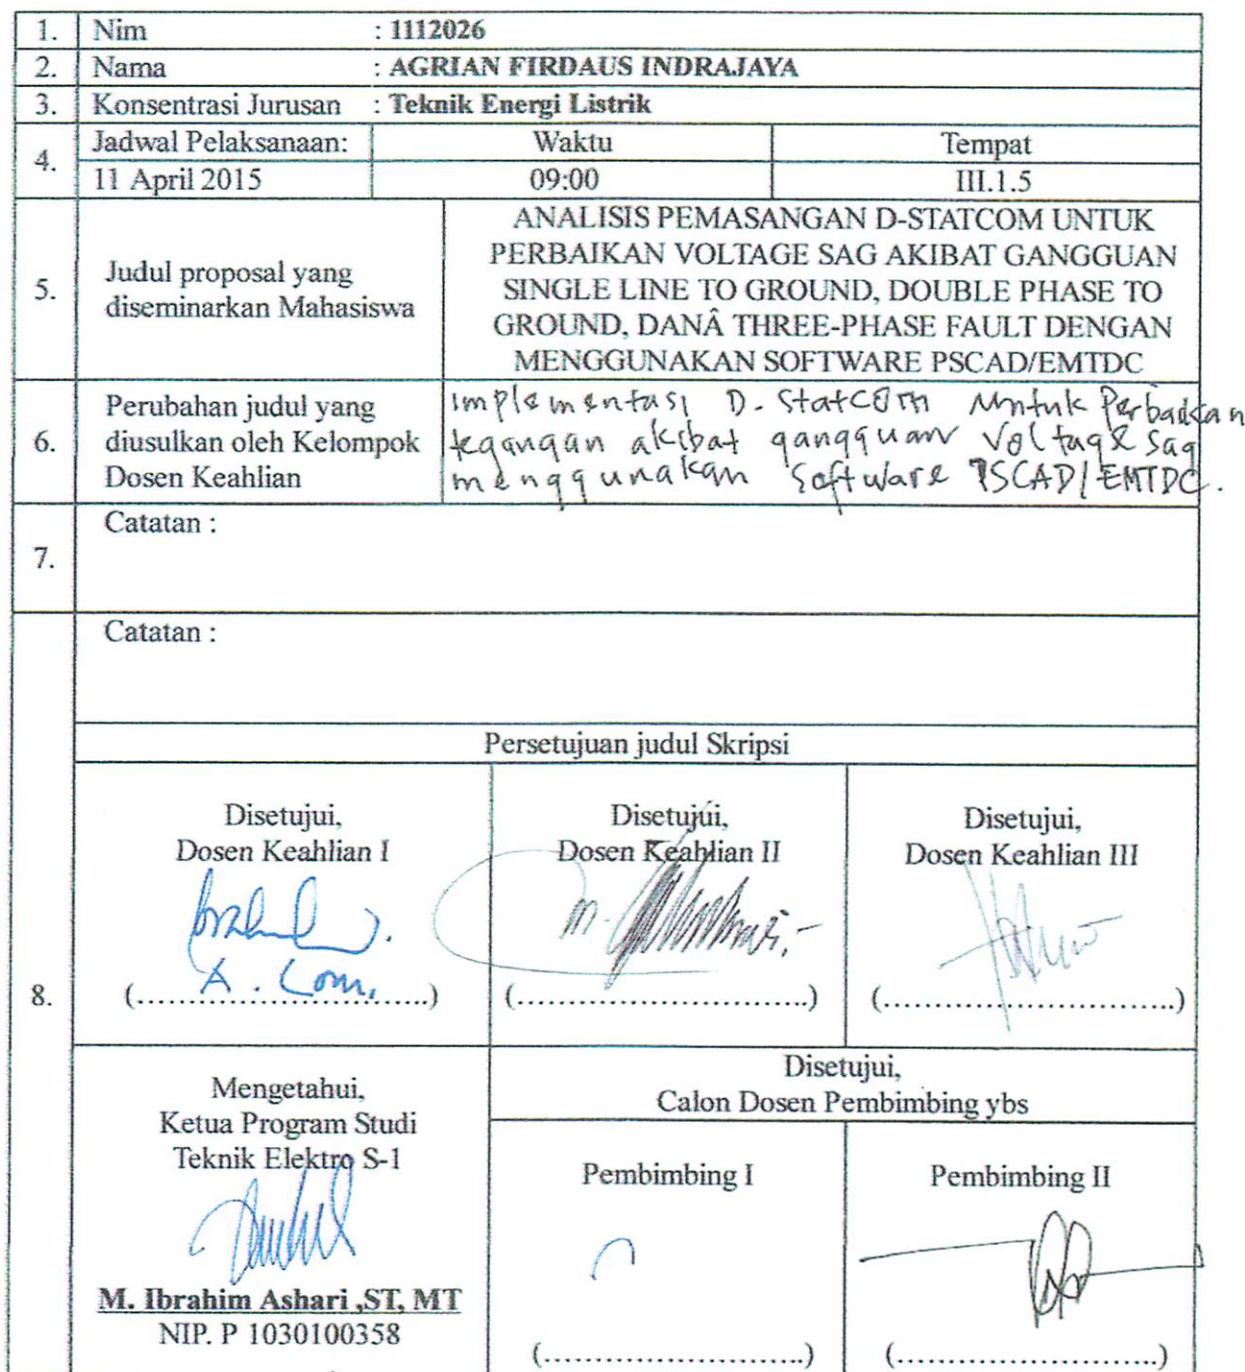 1. Nim : 1112026
2. Nama : AGRIAN FIRDAUS INDRAJAYA
3. Konsentrasi Jurusan : Teknik Energi Listrik
4. Jadwal Pelaksanaan: Waktu Tempat
11 April 2015 09:00 III.1.5
5. Judul proposal yang
diseminarkan Mahasiswa
ANALISIS PEMASANGAN D-STATCOM UNTUK
PERBAIKAN VOLTAGE SAG AKIBAT GANGGUAN
SINGLE LINE TO GROUND, DOUBLE PHASE TO
GROUND, DANÂ THREE-PHASE FAULT DENGAN
MENGGUNAKAN SOFTWARE PSCAD/EMTDC
6. Perubahan judul yang
diusulkan oleh Kelompok
Dosen Keahlian
Implementasi D-StatCOM Untuk Perbaikan
tegangan akibat gangguan Voltage Sag
menggunakan Software PSCAD/EMTDC.
7. Catatan :
8. Catatan :
Persetujuan judul Skripsi
Disetujui,
Dosen Keahlian I
(.............................)
Disetujui,
Dosen Keahlian II
(.............................)
Disetujui,
Dosen Keahlian III
(.............................)
Mengetahui,
Ketua Program Studi
Teknik Elektro S-1
M. Ibrahim Ashari ,ST, MT
NIP. P 1030100358
Disetujui,
Calon Dosen Pembimbing ybs
Pembimbing I
(..........................)
Pembimbing II
(..........................)